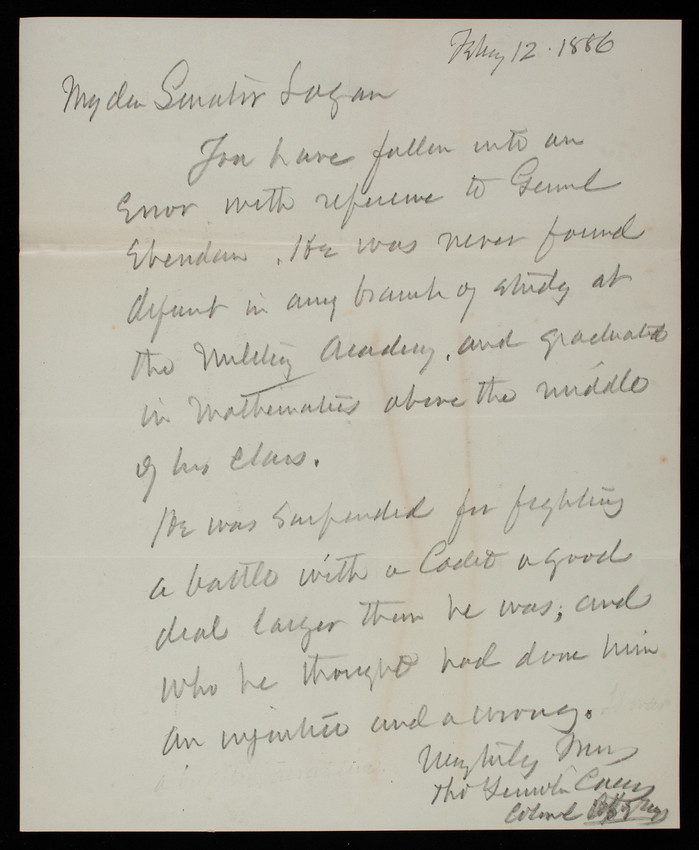 Feby 12. 1886
My dear Senator Logan
You have fallen into an
Error with reference to Genrl
Sheridan. He was never found
deficient in any branch of study at
the Military Academy, and graduated
in Mathematics above the middle
of his class.
He was suspended for fighting
a battle with a Cadet a good
deal larger than he was; and
who he thought had done him
an injustice and a wrong.
Very truly yours
Tho Lincoln Casey
Colonel Corps of Engrs